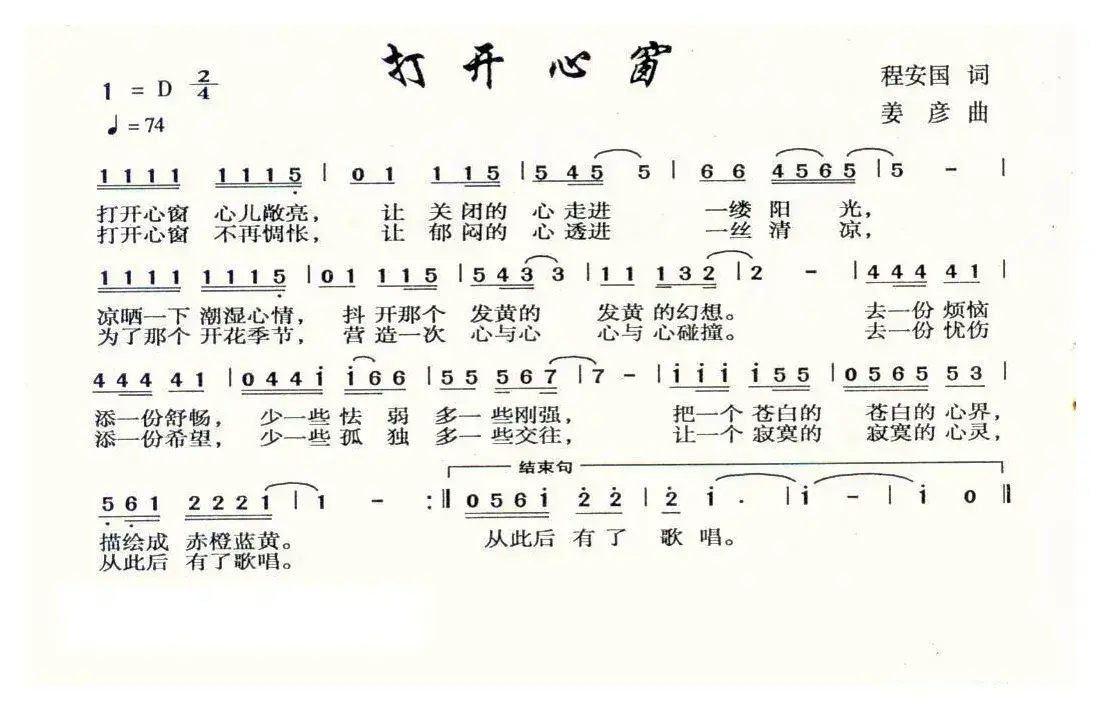 打开心窗
1 = D 2/4
程安国 词
♩=74
姜 彦 曲
1 1 1 1 1 1 1 5 | 0 1 1 1 5 | 5 4 5 5 | 6 6 4 5 6 5 | 5 - |
打开心窗 心儿敞亮， 让 关 闭的 心 走进 一缕 阳 光，
打开心窗 不再惆怅， 让 郁 闷的 心 透进 一丝 清 凉，
1 1 1 1 1 1 1 5 | 0 1 1 1 5 | 5 4 3 3 | 1 1 1 3 2 | 2 - | 4 4 4 4 1 |
凉晒一下 潮湿心情， 抖 开那个 发黄的 发黄 的幻想。 去一份 烦恼
为了那个 开花季节， 营 造一次 心与心 心与 心碰撞。 去一份 忧伤
4 4 4 4 1 | 0 4 4 i i 6 6 | 5 5 5 6 7 | 7 - | i i i i 5 5 | 0 5 6 5 5 3 |
添一份舒畅， 少一些 怯 弱 多一 些刚强， 把一个 苍白的 苍白的 心界，
添一份希望， 少一些 孤 独 多一 些交往， 让一个 寂寞的 寂寞的 心灵，
结束句
5 6 1 2 2 2 1 | 1 - :‖ 0 5 6 i 2 2 | 2 i · | i - | i 0 ‖
描绘成 赤橙蓝黄。 从此后 有 了 歌 唱。
从此后 有了歌唱。